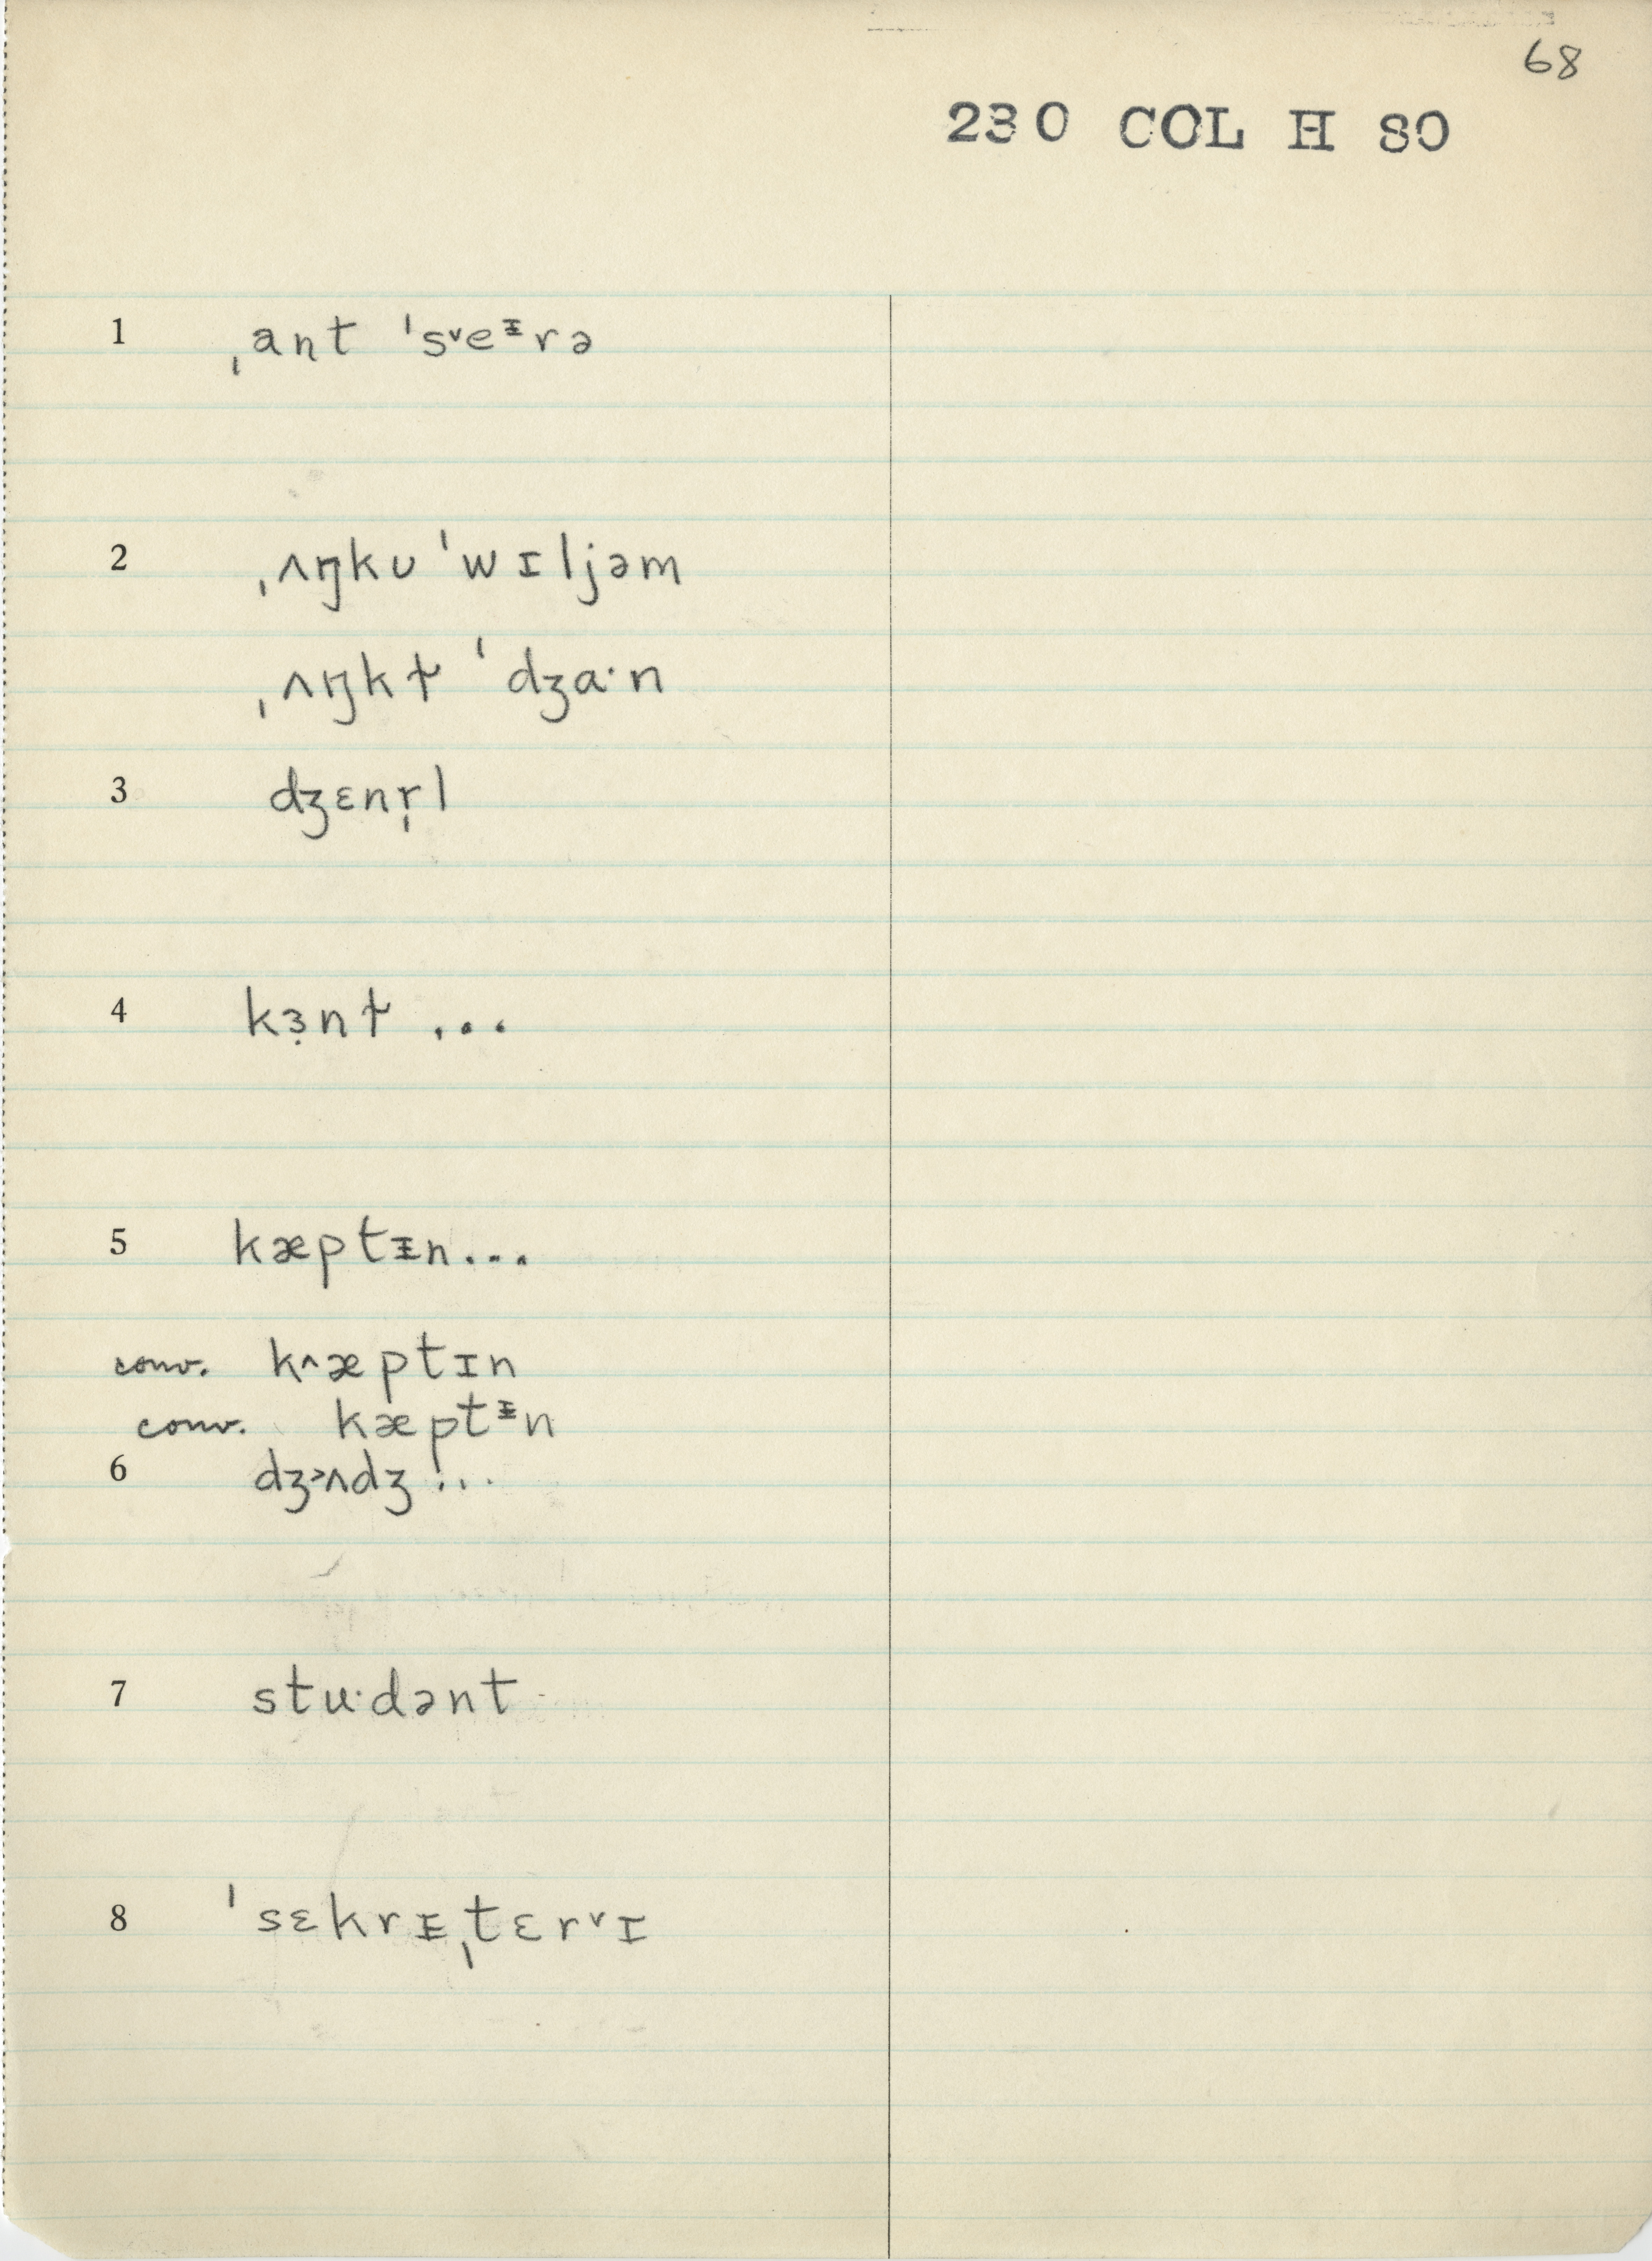 68
230 COL H 80
1 ˌant ˈs˅eᵻrə
2 ˌʌŋkʊ ˈwɪljəm
ˌʌŋkɫ ˈdʒɑ·n
3 dʒɛnr̩l
4 kɜ̣nɫ ...
5 kæptᵻn...
conv. k˄æptɪn
conv. kæptᵻn
6 dʒ˃ʌdʒ ...
7 stu·dənt
8 ˈsɛkrᵻˌtɛr˅ɪ